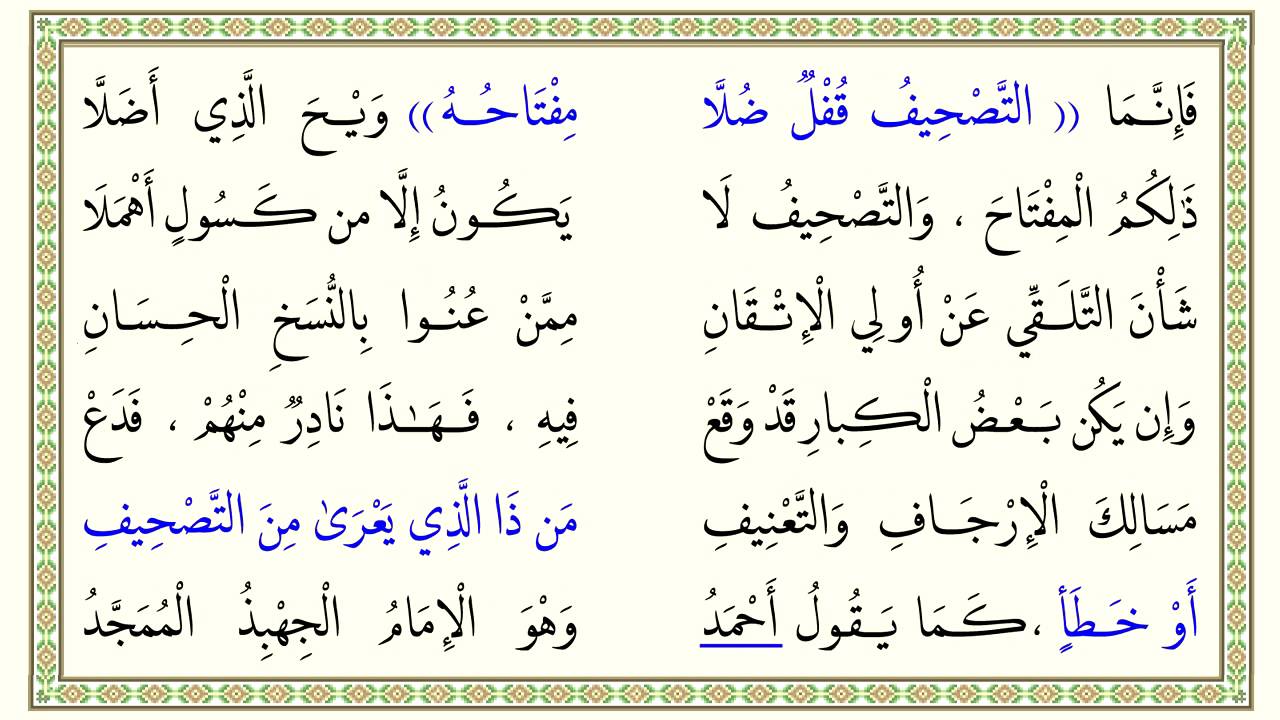 فَإِنَّـمَا (( التَّصْحِيفُ قُفْلٌ ضُلَّا مِفْتَاحُـهُ )) وَيْـحَ الَّذِي أَضَلَّا
ذَلِكُمُ الْمِفْتَاحَ ، وَالتَّصْحِيفُ لَا يَكُـونُ إِلَّا من كَـسُولٍ أَهْمَلَا
شَأْنَ التَّلَـقِّي عَنْ أُولِي الْإِتْـقَانِ مِمَّنْ عُنُـوا بِالنُّسَخِ الْحِـسَـانِ
وَإِن يَكُن بَـعْـضُ الْكِبارِ قَدْ وَقَعْ فِيهِ ، فَـهَـٰذَا نَادِرٌ مِنْهُمْ ، فَدَعْ
مَسَالِكَ الْإِرْجَـافِ وَالتَّعْنِيفِ مَن ذَا الَّذِي يَعْرَىٰ مِنَ التَّصْحِيفِ
أَوْ خَـطَأٍ ، كَـمَا يَـقُولُ أَحْمَدُ وَهْوَ الْإِمَامُ الْجِهْبِذُ الْمُمَجَّدُ